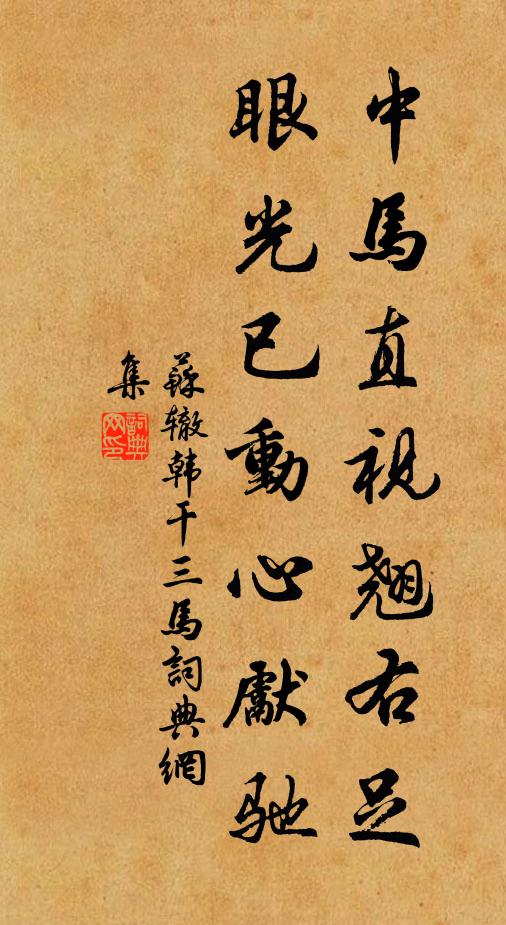 中馬直視翹右足
眼光已動心獻馳
蘇辙韩干三馬詞典網
集
詞典
网印